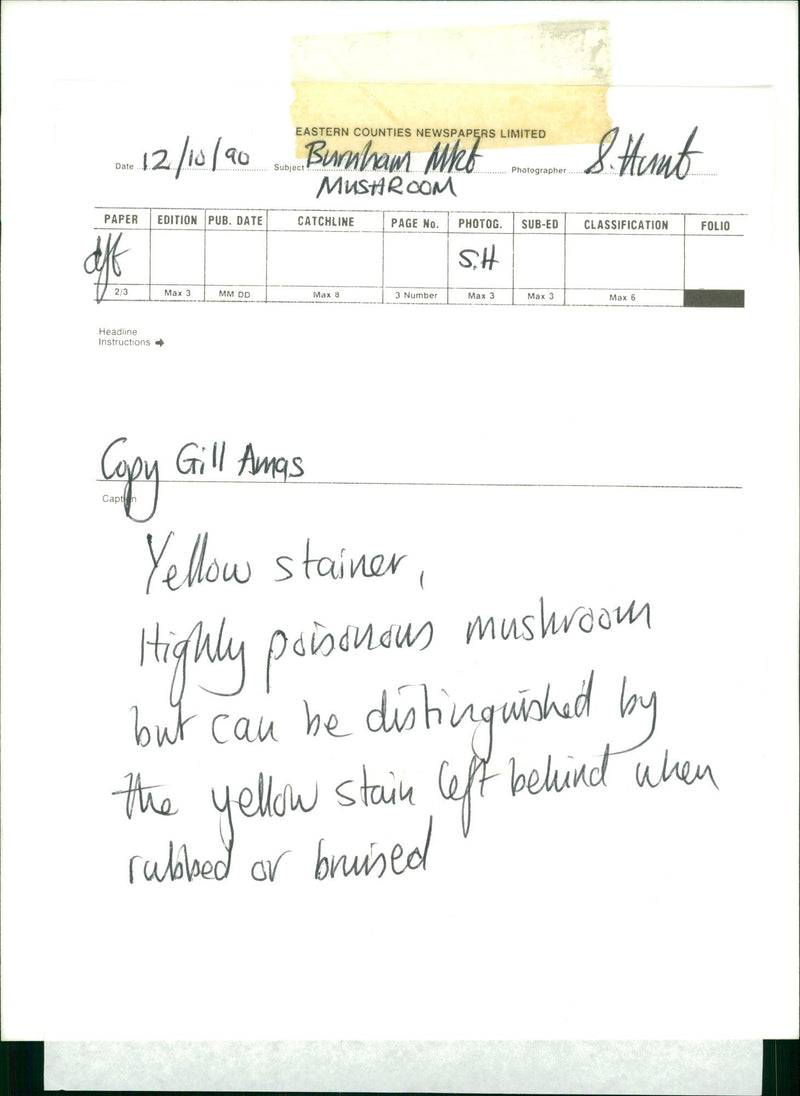 EASTERN COUNTIES NEWSPAPERS LIMITED
Date 12/10/90 Subject Burnham Mkt Photographer S. Hunt
MUSHROOM
PAPER EDITION PUB. DATE CATCHLINE PAGE No. PHOTOG. SUB-ED CLASSIFICATION FOLIO
S.H
2/3 Max 3 MM DD Max 8 3 Number Max 3 Max 3 Max 6
Headline
Instructions ➡
Copy Gill Amas
Caption
Yellow stainer,
Highly poisonous mushroom
but can be distinguished by
the yellow stain left behind when
rubbed or bruised